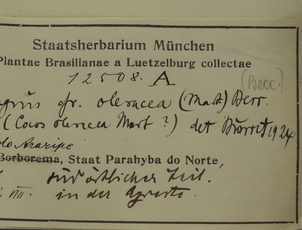 Staatsherbarium München
Plantae Brasilianae a Luetzelburg collectae
12508. A
(Becc.)
fr. oleracea (Mart) Becc.
(Cocos oleracea Mart ?) det Burret 1924
Araripe
Borborema, Staat Parahyba do Norte,
südöstlicher Teil.
in der Agreste.